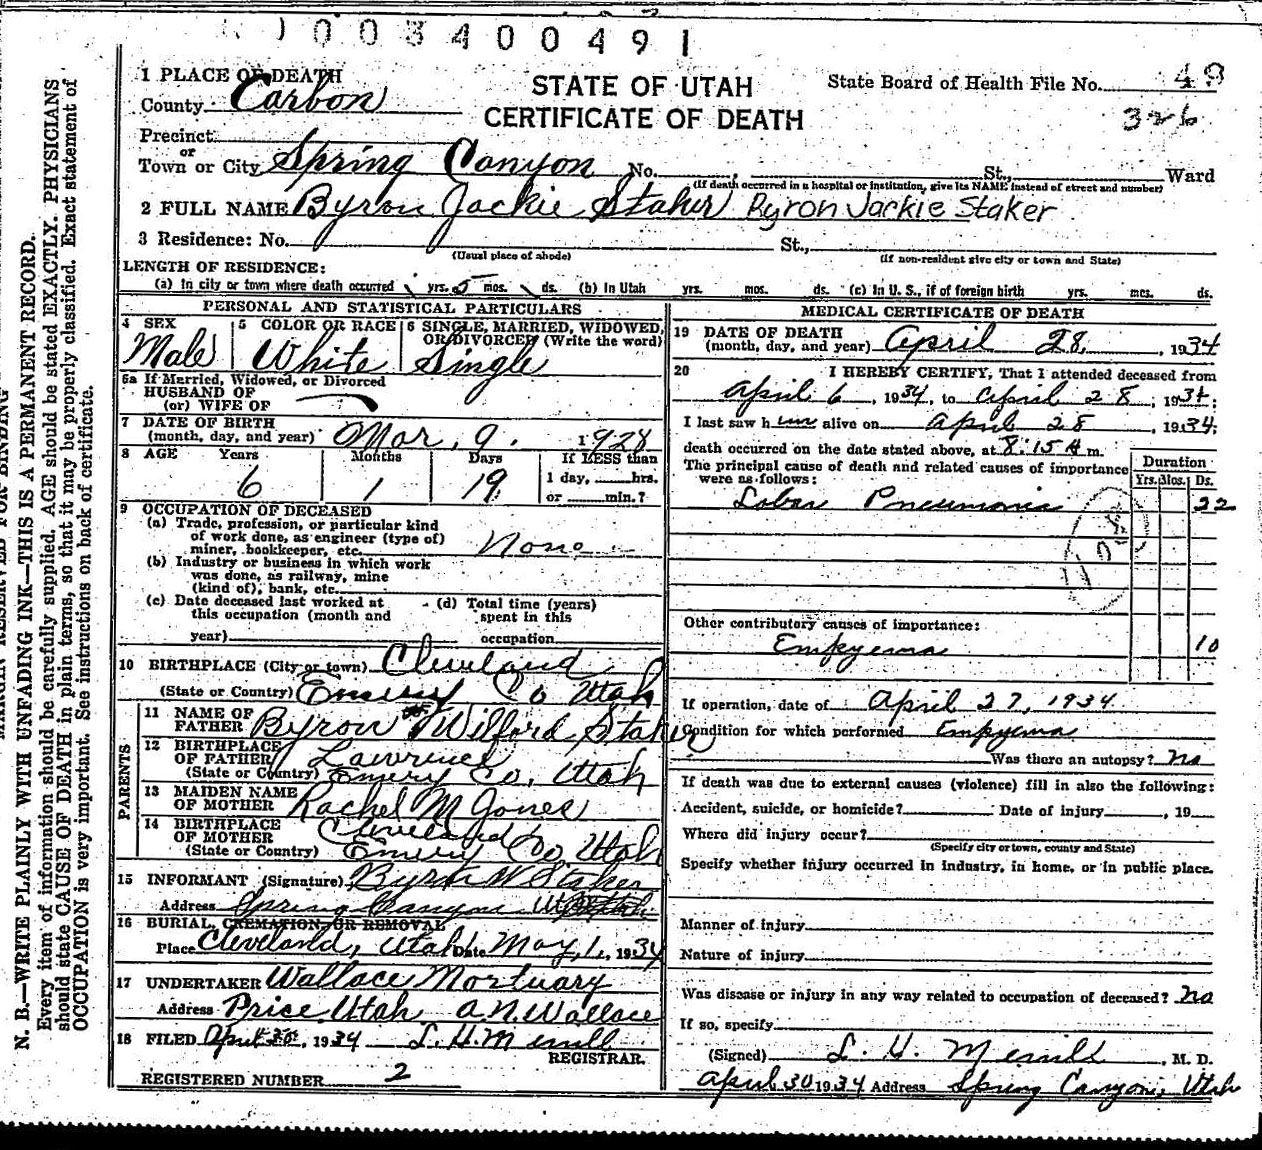 003400491
1 PLACE OF DEATH
County Carbon
STATE OF UTAH
CERTIFICATE OF DEATH
State Board of Health File No. 49
326
Precinct
or
Town or City Spring Canyon No. St., Ward
(If death occurred in a hospital or institution, give its NAME instead of street and number)
2 FULL NAME Byron Jackie Staker Byron Jackie Staker
3 Residence: No. St.,
(Usual place of abode) (If non-resident give city or town and State)
LENGTH OF RESIDENCE:
(a) In city or town where death occurred yrs. 5 mos. ds. (b) In Utah yrs. mos. ds. (c) In U. S., if of foreign birth yrs. mcs. ds.
PERSONAL AND STATISTICAL PARTICULARS
4 SEX Male
5 COLOR OR RACE White
6 SINGLE, MARRIED, WIDOWED, OR DIVORCED (Write the word) Single
6a If Married, Widowed, or Divorced
HUSBAND OF
(or) WIFE OF
7 DATE OF BIRTH
(month, day, and year) Mar. 9. 1928
8 AGE Years Months Days If LESS than
6 1 19 1 day, hrs.
or min.?
9 OCCUPATION OF DECEASED
(a) Trade, profession, or particular kind
of work done, as engineer (type of)
miner, bookkeeper, etc. None
(b) Industry or business in which work
was done, as railway, mine
(kind of), bank, etc.
(c) Date deceased last worked at (d) Total time (years)
this occupation (month and spent in this
year) occupation
10 BIRTHPLACE (City or town) Cleveland
(State or Country) Emery Co Utah
PARENTS
11 NAME OF
FATHER Byron Wilford Staker
12 BIRTHPLACE
OF FATHER Lawrence
(State or Country) Emery Co, Utah
13 MAIDEN NAME
OF MOTHER Rachel M Jones
14 BIRTHPLACE
OF MOTHER Cleveland
(State or Country) Emery Co. Utah
15 INFORMANT (Signature) Byron W Staker
Address Spring Canyon Utah
16 BURIAL, CREMATION, OR REMOVAL
Place Cleveland, Utah Date May, 1., 1934
17 UNDERTAKER Wallace Mortuary
Address Price Utah A. N. Wallace
18 FILED April 30, 1934 L. H. Merrill
REGISTRAR.
REGISTERED NUMBER 2
MEDICAL CERTIFICATE OF DEATH
19 DATE OF DEATH
(month, day, and year) April 28, 1934
20 I HEREBY CERTIFY, That I attended deceased from
April 6, 1934, to April 28, 1934;
I last saw him alive on April 28, 1934;
death occurred on the date stated above, at 8:15 A m.
The principal cause of death and related causes of importance
were as follows:
Duration
Yrs. Mos. Ds.
Lobar Pneumonia 22
Other contributory causes of importance:
Empyema 10
If operation, date of April 27, 1934
Condition for which performed Empyema
Was there an autopsy? no
If death was due to external causes (violence) fill in also the following:
Accident, suicide, or homicide? Date of injury , 19
Where did injury occur?
(Specify city or town, county and State)
Specify whether injury occurred in industry, in home, or in public place.
Manner of injury
Nature of injury
Was disease or injury in any way related to occupation of deceased? no
If so, specify
(Signed) L. H. Merrill, M. D.
April 30 1934 Address Spring Canyon, Utah
MARGIN RESERVED FOR BINDING
N. B.—WRITE PLAINLY WITH UNFADING INK—THIS IS A PERMANENT RECORD.
Every item of information should be carefully supplied. AGE should be stated EXACTLY. PHYSICIANS
should state CAUSE OF DEATH in plain terms, so that it may be properly classified. Exact statement of
OCCUPATION is very important. See instructions on back of certificate.